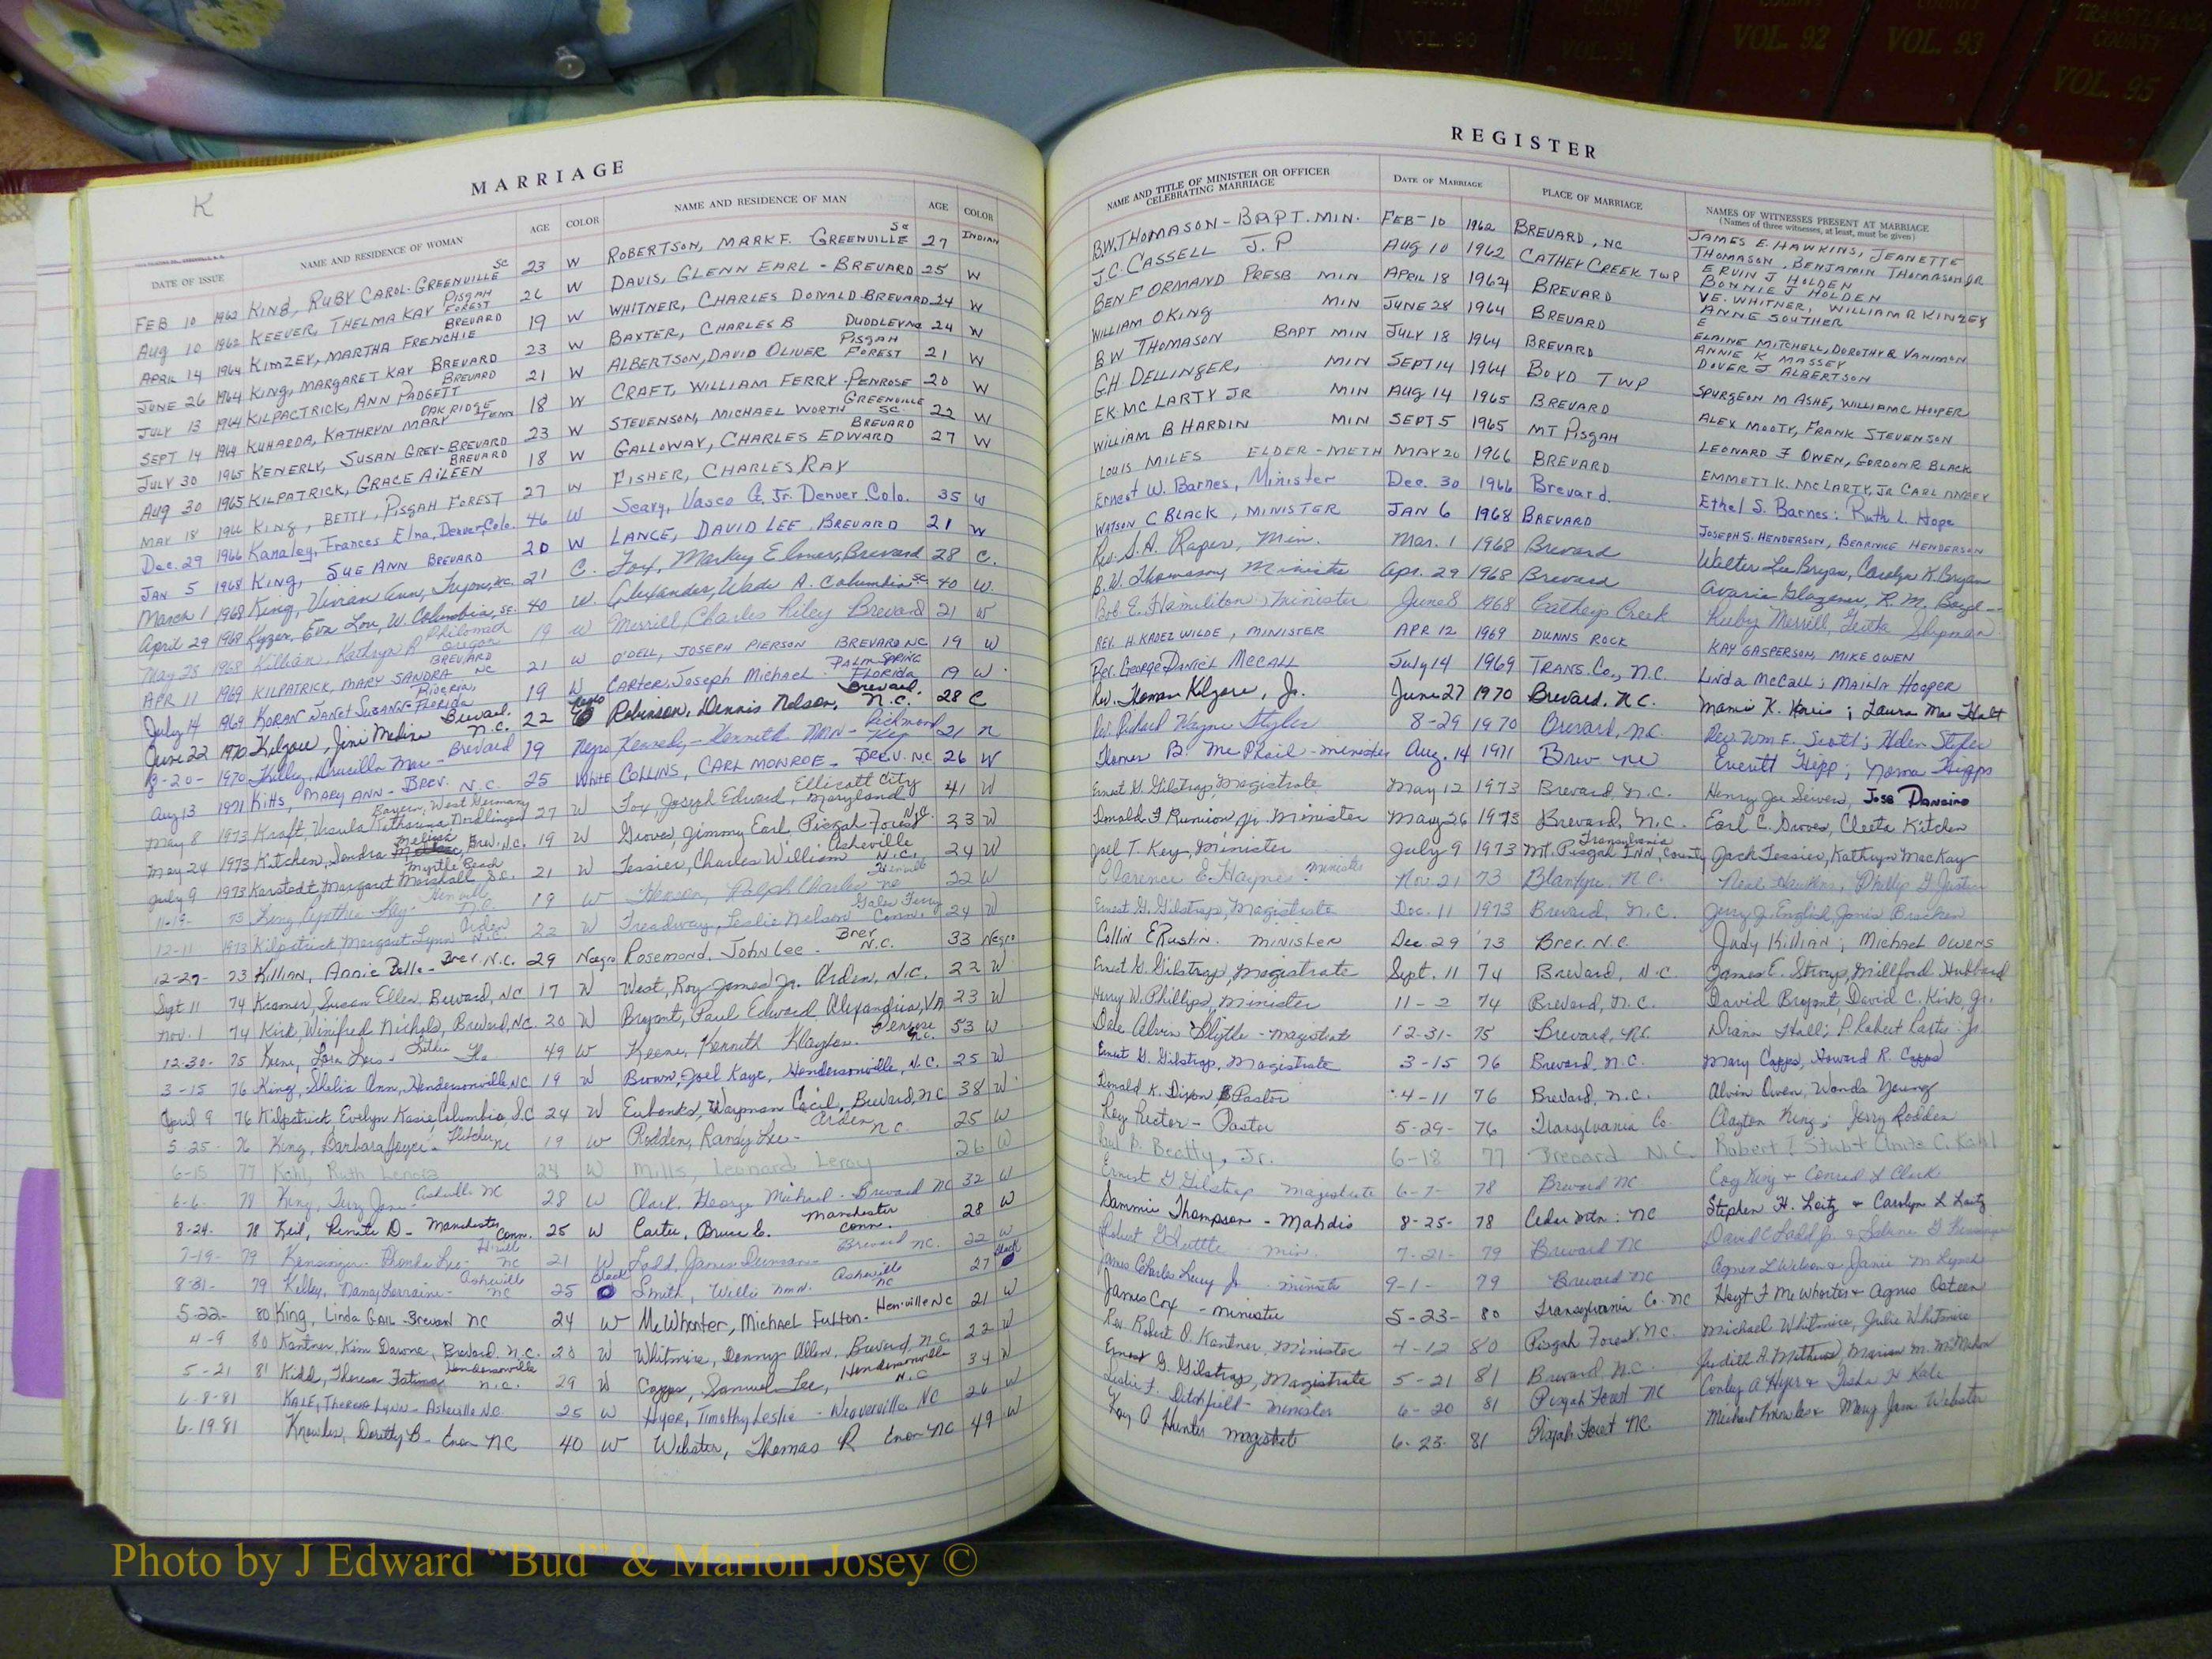 COUNTY VOL. 90
COUNTY VOL. 91
COUNTY VOL. 92
COUNTY VOL. 93
TRANSYLVANIA COUNTY VOL. 95
K
MARRIAGE
REGISTER
DATE OF ISSUE NAME AND RESIDENCE OF WOMAN AGE COLOR NAME AND RESIDENCE OF MAN AGE COLOR
NAME AND TITLE OF MINISTER OR OFFICER CELEBRATING MARRIAGE DATE OF MARRIAGE PLACE OF MARRIAGE NAMES OF WITNESSES PRESENT AT MARRIAGE
(Names of three witnesses, at least, must be given)
FEB 10 1962 KING, RUBY CAROL-GREENVILLE SC 23 W ROBERTSON, MARK F. GREENVILLE SC 27 INDIAN
AUG 10 1962 KEEVER, THELMA KAY PISGAH FOREST 26 W DAVIS, GLENN EARL - BREVARD 25 W
APRIL 14 1964 KIMZEY, MARTHA FRENCHIE BREVARD 19 W WHITNER, CHARLES DONALD BREVARD 24 W
JUNE 26 1964 KING, MARGARET KAY BREVARD 23 W BAXTER, CHARLES B 24 W
JULY 13 1964 KILPACTRICK, ANN PADGETT BREVARD 21 W ALBERTSON, DAVID OLIVER PISGAH FOREST 21 W
SEPT 14 1964 KUHARDA, KATHRYN MARY OAK RIDGE TENN 18 W CRAFT, WILLIAM FERRY-PENROSE 20 W
JULY 30 1965 KENERLY, SUSAN GREY-BREVARD 23 W STEVENSON, MICHAEL WORTH GREENVILLE SC 22 W
AUG 30 1965 KILPATRICK, GRACE AILEEN BREVARD 18 W GALLOWAY, CHARLES EDWARD BREVARD 27 W
MAY 18 1966 KING, BETTY, PISGAH FOREST 27 W FISHER, CHARLES RAY
Dec. 29 1966 Kanaley, Frances Elna, Denver, Colo. 46 W Seary, Vasco G. Jr. Denver Colo. 35 W
JAN 5 1968 KING, SUE ANN BREVARD 20 W LANCE, DAVID LEE BREVARD 21 W
March 1 1968 King, Vivian Ann, Tryon, NC. 21 C. Fox, Markey Elmer, Brevard 28 C.
April 29 1968 Kyzer, Eva Lou, W. Columbia, SC. 40 W. Alexander, Wade A. Columbia SC. 40 W.
May 28 1968 Killian, Kathryn R Philomath Oregon 19 W Merrill, Charles Riley Brevard 21 W
APR 11 1969 KILPATRICK, MARY SANDRA BREVARD NC 21 W O'DELL, JOSEPH PIERSON BREVARD NC 19 W
July 14 1969 KORAN JANET SUZANNE FLORIDA 19 W CARTER, Joseph Michael PALM SPRING FLORIDA 19 W
June 22 1970 Kilgore, Jimi Medina Brevard N.C. 22 Robinson, Dennis Nelson, Brevard N.C. 28 C
8-20- 1970 Kelley, Drusilla Mae - Brevard 19 Negro Kennedy - Kenneth NMN - Richmond Ky 21 n
Aug 13 1971 KITTS, MARY ANN - BREV. N.C. 25 WHITE COLLINS, CARL MONROE - BREV. N.C 26 W
May 8 1973 Kraft, Ursula Katharina Nordlingen Bayern, West Germany 27 W Fox, Joseph Edward, Ellicott City Maryland 41 W
May 24 1973 Kitchen, Sandra Brev. N.C. 19 W Groves, Jimmy Earl, Pisgah Forest N.C. 23 W
July 9 1973 Karstedt, Margaret Marshall Myrtle Beach S.C. 21 W Tessier, Charles William Asheville N.C. 24 W
11-19- 73 King Cynthia Kay 19 W Ralph Charles 22 W
12-11 1973 Kilpatrick Margaret Lynn Arden N.C. 22 W Treadway, Leslie Nelson Gales Ferry Conn. 24 W
12-27- 73 KILLIAN, Annie Belle - Brev N.C. 29 Negro Rosemond, John Lee - Brev N.C. 33 Negro
Sept 11 74 Kramer, Susan Ellen, Brevard, NC 17 W West, Roy James Jr. Arden, N.C. 22 W
Nov. 1 74 Kirk, Winifred Nichols, Brevard, NC. 20 W Bryant, Paul Edward Alexandria, VA 23 W
12-30- 75 Lois - Lithia Fla 49 W Keene, Kenneth Klayton - Penrose NC. 53 W
3-15 76 King, Shelia Ann, Hendersonville, NC 19 W Brown, Joel Kaye, Hendersonville, N.C. 25 W
April 9 76 Kilpatrick, Evelyn Kasie Columbia, S.C 24 W Eubanks, Wayman Cecil, Brevard, NC 38 W
5-25- 76 King, Barbara Joyce - Fletcher NC 19 W Rodden, Randy Lee - Arden N.C. 25 W
6-15 77 Kohl, Ruth Lenora 24 W Mills, Leonard Leroy 26 W
6-6- 78 King, Terry Jane - Asheville NC 28 W Clark, George Michael - Brevard NC 32 W
8-24- 78 Keil, Renate D - Manchester Conn. 25 W Carter, Bruce E. Manchester Conn. 28 W
7-19- 79 Kensinger - Lee - NC 21 W Ladd, James Duncan - Brevard NC. 22 W
8-31- 79 Kelley, Nancy Lorraine - Asheville NC 25 Black Smith, Willis NMN. Asheville NC 27 Black
5-22- 80 King, Linda Gail Brevard NC 24 W McWhorter, Michael Fulton - Hen-ville NC 21 W
4-9 80 Kantner, Kim Dawne, Brevard, N.C. 20 W Whitmire, Donnyn Allen, Brevard, N.C. 22 W
5-21 81 Kidd, Theresa Fatima Hendersonville N.C. 29 W Capps, Samuel Lee, Hendersonville N.C 34 W
6-8-81 KALE, THERESA LYNN - Asheville N.C. 25 W Hyer, Timothy Leslie - Weaverville NC 26 W
6-19-81 Knowles, Dorothy B - Enon NC 40 W Webster, Thomas R Enon NC 49 W
B.W. THOMASON - BAPT. MIN. FEB-10 1962 BREVARD, NC JAMES E. HAWKINS, JEANETTE THOMASON, BENJAMIN THOMASON JR
J.C. CASSELL J.P AUG 10 1962 CATHEY CREEK TWP ERVIN J HOLDEN BONNIE J HOLDEN
BEN F ORMAND PRESB MIN APRIL 18 1964 BREVARD V.E. WHITNER, WILLIAM R KINZEY ANNE SOUTHER
WILLIAM O KING MIN JUNE 28 1964 BREVARD
B W THOMASON BAPT MIN JULY 18 1964 BREVARD ELAINE MITCHELL, DOROTHY R VANIMAN ANNIE K MASSEY DOVER J ALBERTSON
G.H DELLINGER, MIN SEPT 14 1964 BOYD TWP
E.K. MC LARTY JR MIN AUG 14 1965 BREVARD SPURGEON M ASHE, WILLIAM C HOOPER
WILLIAM B HARDIN MIN SEPT 5 1965 MT PISGAH ALEX MOOTY, FRANK STEVENSON
LOUIS MILES ELDER-METH MAY 20 1966 BREVARD LEONARD F OWEN, GORDON R BLACK
Ernest W. Barnes, Minister Dec. 30 1966 Brevard. EMMETT K. MCLARTY, JR CARL
WATSON C BLACK, MINISTER JAN 6 1968 BREVARD Ethel S. Barnes: Ruth L. Hope
Rev. S.A. Raper, Min. Mar. 1 1968 Brevard JOSEPH S. HENDERSON, BEARNICE HENDERSON
B.W. Thomason, Minister Apr. 29 1968 Brevard Walter Lee Bryan, Carolyn K. Bryan
Bob E. Hamilton, Minister June 8 1968 Catheys Creek Avaria Glazener, R. M.
REV. H. KADEZ WILDE, MINISTER APR 12 1969 DUNNS ROCK Ruby Merrill, Shipman
Rev. George Daniel McCALL July 14 1969 TRANS. Co., N.C. KAY GASPERSON, MIKE OWEN
Rev. Thomas Kilgore, Jr. June 27 1970 Brevard, N.C. Linda McCall; Hooper
Rev Richard Wayne Styles 8-29 1970 Brevard, N.C. Mamie K. Harris; Laura Mae Holt
Homer B. McPhail - minister Aug. 14 1971 Brev NC Rev. Wm F. Scott; Helen
Ernest G. Gilstrap, Magistrate May 12 1973 Brevard, N.C. Everitt Hipp; Norma Hipps
Donald F Runion, Jr. Minister May 26 1973 Brevard, N.C. Henry Joe Sewers, Jose
Joel T. Key, Minister July 9 1973 Mt. Pisgah INN, Transylvania County Earl C. Groves, Cleeta Kitchen
Clarence E. Haynes - minister Nov. 21 73 Blantyre N.C. Jack Tessier, Kathryn MacKay
Ernest G. Gilstrap, Magistrate Dec. 11 1973 Brevard, N.C. Neal Hawkins, Phillip G Justus
Collin E Rustin. minister Dec. 29 '73 Brev. N.C. Jerry J. English, Janis Bracken
Ernest G. Gilstrap, Magistrate Sept. 11 74 Brevard, N.C. Judy Killian; Michael Owens
Henry W. Phillips, Minister 11-2 74 Brevard, N.C. James E. Stroup, Millford Hubbard
Dale Alvin Blythe - Magistrate 12-31- 75 Brevard, NC. David Bryant, David C. Kirk, Jr.
Ernest G. Gilstrap, Magistrate 3-15 76 Brevard, N.C. Diana Hall; P. Robert
Donald K. Dixon, Pastor 4-11 76 Brevard, N.C. Mary Capps, Howard R. Capps
Roy Rector - Pastor 5-29- 76 Transylvania Co. Alvin Owen, Wanda Young
Paul B. Beatty, Jr. 6-18 77 Brevard N.C. Clayton King; Jerry Rodden
Ernest G Gilstrap magistrate 6-7- 78 Brevard NC Robert E C. Kohl
Sammie Thompson - 8-25- 78 Cedar Mtn: NC King & Conrad L Clark
Robert G Tuttle min. 7-21- 79 Brevard NC Stephen H. Leitz & Carolyn L Leitz
James Charles Jr. minister 9-1- 79 Brevard NC David C Ladd Jr. &
James Cox - minister 5-23- 80 Transylvania Co. NC Agnes L Wilson & Janie M Lynch
Rev. Robert O. Kantner, Minister 4-12 80 Pisgah Forest, N.C. Hoyt F McWhorter & Agnes Osteen
Ernest G. Gilstrap, Magistrate 5-21 81 Brevard N.C. Michael Whitmire, Julie Whitmire
Leslie F. Ditchfield - minister 6-20 81 Pisgah Forest NC Judith A. Mathews, Marion M. McMahon
Fay A Hunter magistrate 6-23- 81 Pisgah Forest NC. Conley A Hyer & Tisha H Kale
Michael Knowles & Mary Jane Webster
Photo by J Edward “Bud” & Marion Josey ©